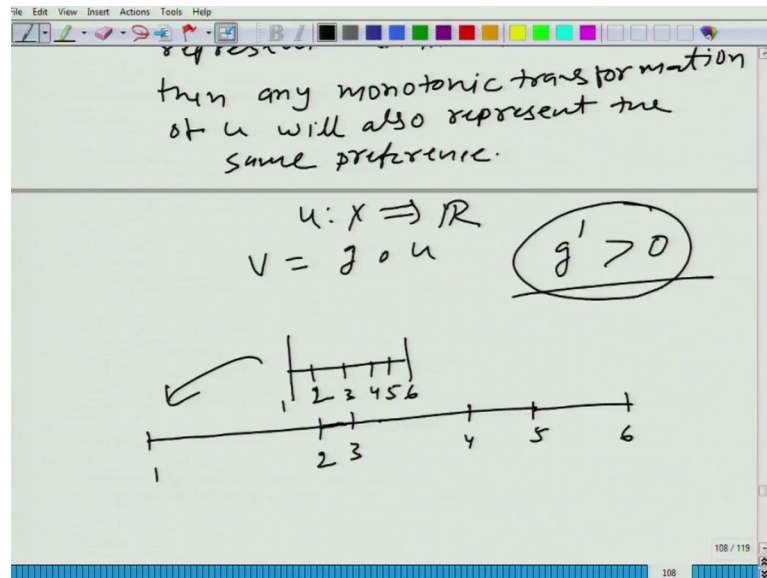 File Edit View Insert Actions Tools Help
B I
then any monotonic transformation
of u will also represent the
same preference.
u: X ⇒ ℝ
V = g ∘ u
g' > 0
1 2 3 4 5 6
1 2 3 4 5 6
108 / 119
108